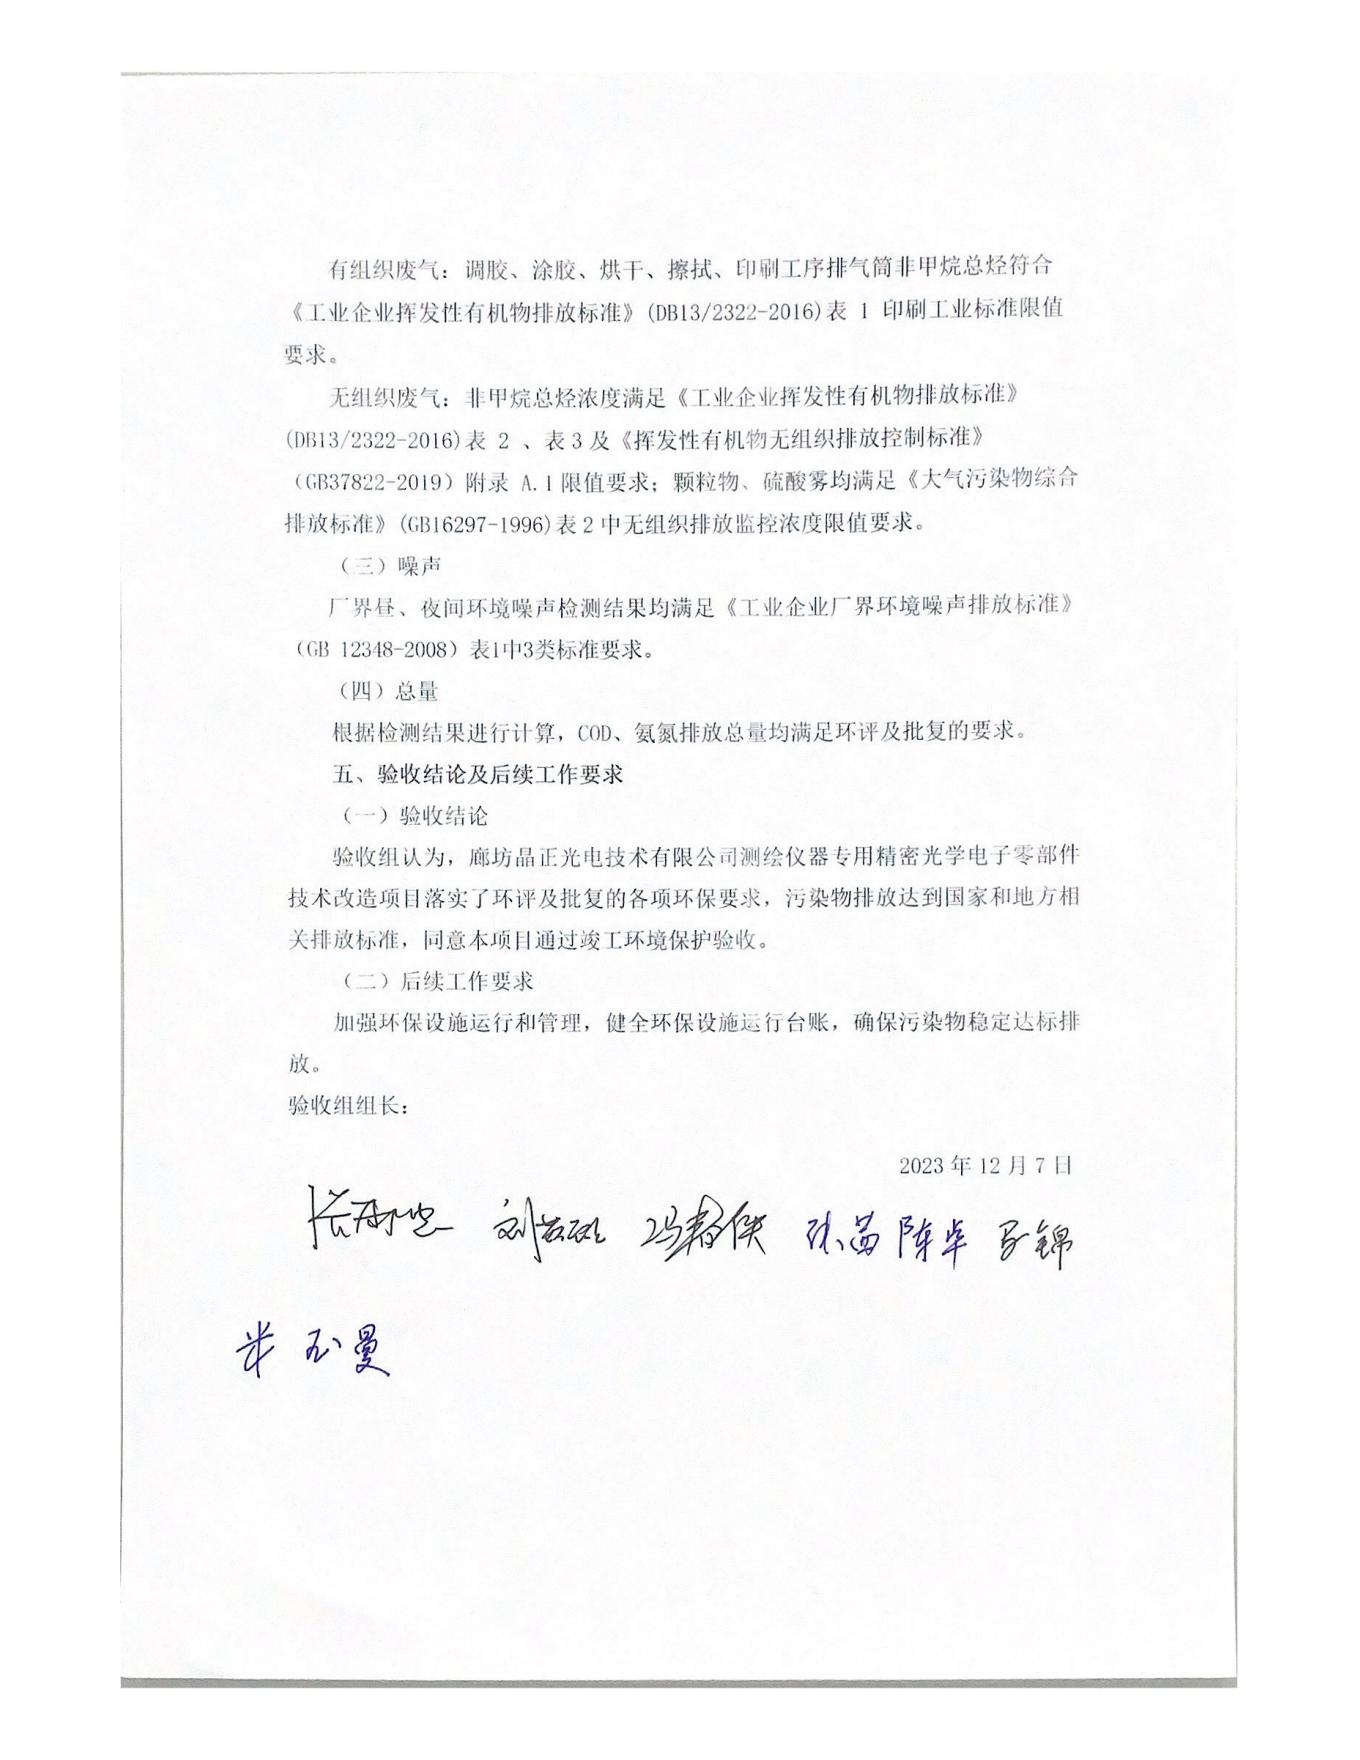 有组织废气：调胶、涂胶、烘干、擦拭、印刷工序排气筒非甲烷总烃符合
《工业企业挥发性有机物排放标准》(DB13/2322-2016)表 1 印刷工业标准限值
要求。
无组织废气：非甲烷总烃浓度满足《工业企业挥发性有机物排放标准》
(DB13/2322-2016)表 2 、表 3 及《挥发性有机物无组织排放控制标准》
（GB37822-2019）附录 A.1 限值要求；颗粒物、硫酸雾均满足《大气污染物综合
排放标准》(GB16297-1996)表 2 中无组织排放监控浓度限值要求。
（三）噪声
厂界昼、夜间环境噪声检测结果均满足《工业企业厂界环境噪声排放标准》
（GB 12348-2008）表1中3类标准要求。
（四）总量
根据检测结果进行计算，COD、氨氮排放总量均满足环评及批复的要求。
五、验收结论及后续工作要求
（一）验收结论
验收组认为，廊坊晶正光电技术有限公司测绘仪器专用精密光学电子零部件
技术改造项目落实了环评及批复的各项环保要求，污染物排放达到国家和地方相
关排放标准，同意本项目通过竣工环境保护验收。
（二）后续工作要求
加强环保设施运行和管理，健全环保设施运行台账，确保污染物稳定达标排
放。
验收组组长：
2023 年 12 月 7 日
张茜 陈卓
米玉曼